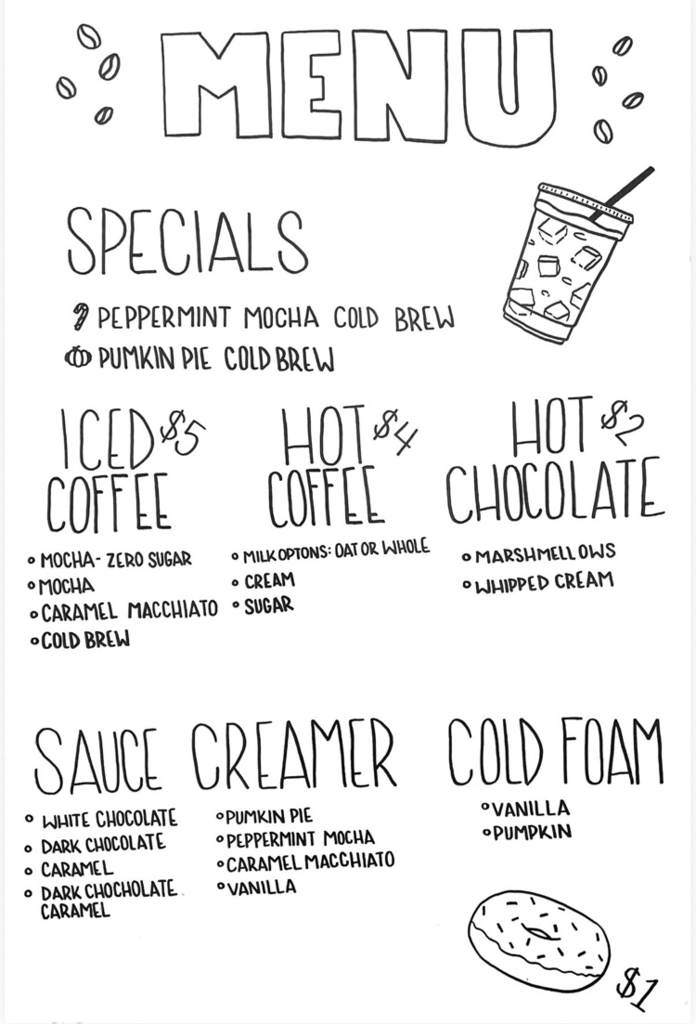 MENU
SPECIALS
PEPPERMINT MOCHA COLD BREW
PUMKIN PIE COLD BREW
ICED COFFEE $5
MOCHA- ZERO SUGAR
MOCHA
CARAMEL MACCHIATO
COLD BREW
HOT COFFEE $4
MILK OPTONS: OAT OR WHOLE
CREAM
SUGAR
HOT CHOCOLATE $2
MARSHMELLOWS
WHIPPED CREAM
SAUCE
WHITE CHOCOLATE
DARK CHOCOLATE
CARAMEL
DARK CHOCHOLATE
CARAMEL
CREAMER
PUMKIN PIE
PEPPERMINT MOCHA
CARAMEL MACCHIATO
VANILLA
COLD FOAM
VANILLA
PUMPKIN
$1